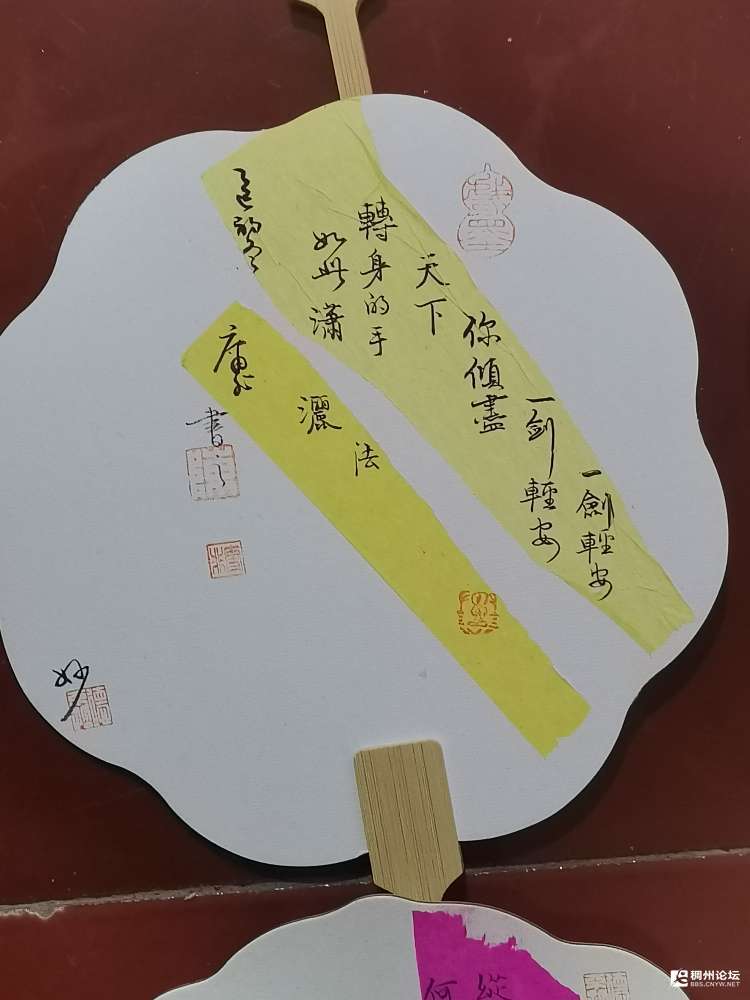 一劍輕安
一劍輕安
你傾盡
天下
轉身的手
如此瀟
灑
法
書之
妙
縱
何
稠州论坛
BBS.CNYW.NET